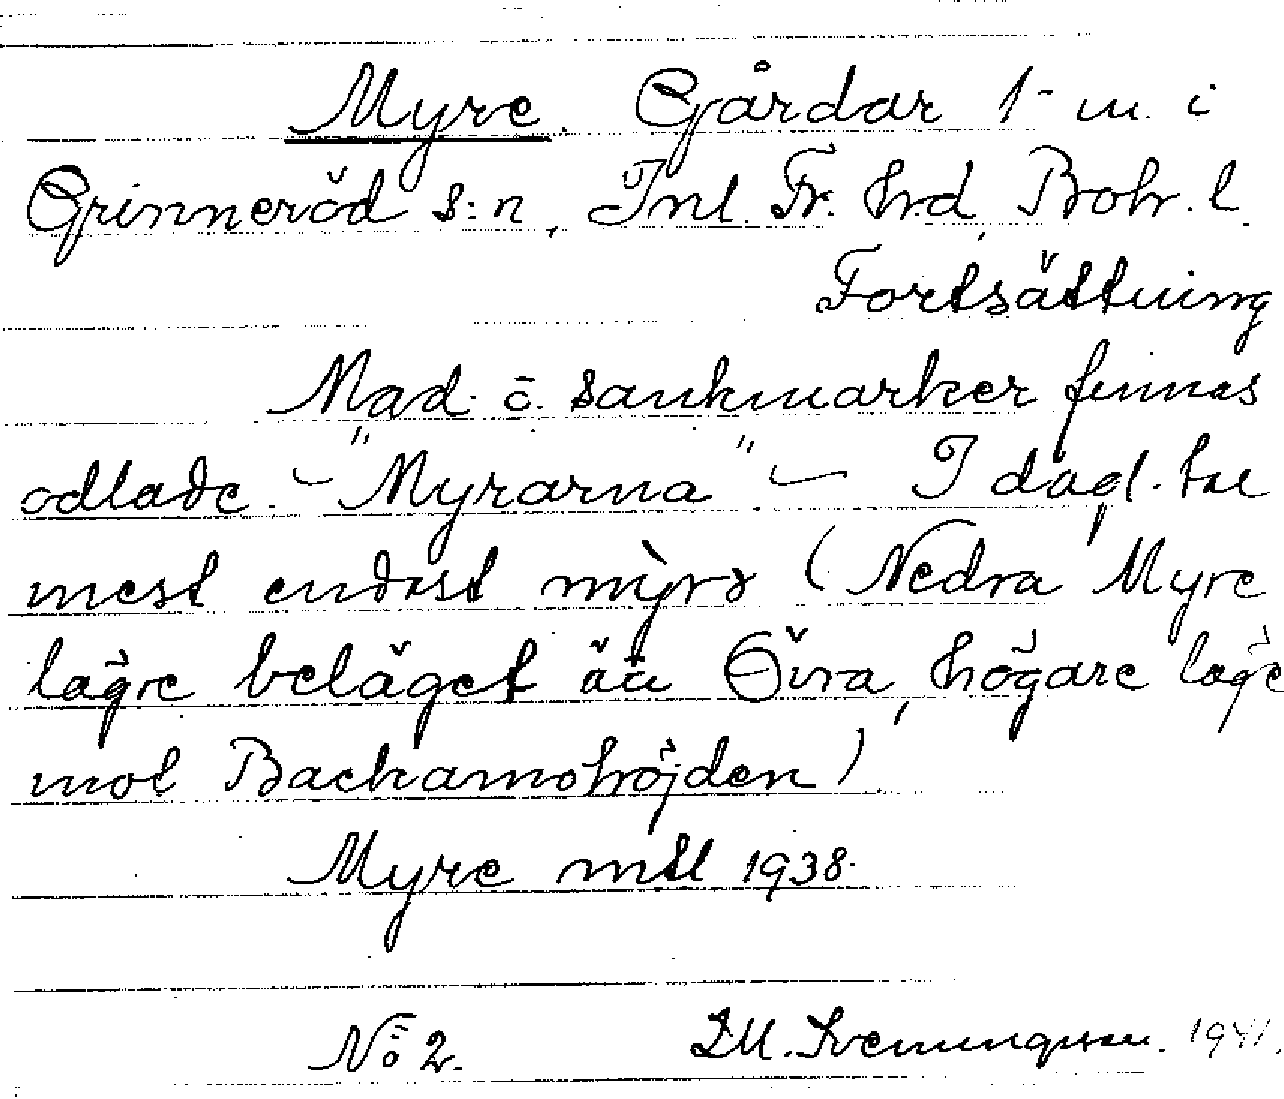 Myre. Gårdar 1- m. i
Grinneröd s:n, Inl. Fr. hrd, Boh. l.
Fortsättning
Mad- o. sankmarker finnas
odlade. - "Myrarna" - I dagl. tal
mest endast (Nedra Myre
lägre beläget än Övra, högare läge
mot Backamohöjden)
Myre mtl 1938.
No 2. 1941.